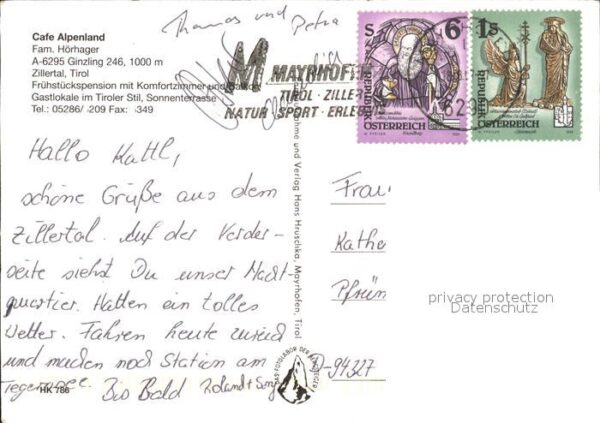 Thomas und Petra
Cafe Alpenland
Fam. Hörhager
A-6295 Ginzling 246, 1000 m
Zillertal, Tirol
Frühstückspension mit Komfortzimmer und
Gastlokale im Tiroler Stil, Sonnenterrasse
Tel.: 05286/ 209 Fax: 349
MAYRHOFEN
TIROL · ZILLER
NATUR · SPORT · ERLEB
S 6
REPUBLIK
ÖSTERREICH
1s
REPUBLIK
ÖSTERREICH
629
Hallo Kathl,
schöne Grüße aus dem
Zillertal. Auf der Vorder-
seite siehst Du unser Nacht-
quartier. Hatten ein tolles
Wetter. Fahren heute zurück
und machen noch Station am
Tegernsee. Bis Bald Roland +
HK 786
und Verlag Hans Hruschka, Mayrhofen, Tirol
Frau
Kathe
Pfrün
D-94327
privacy protection
Datenschutz